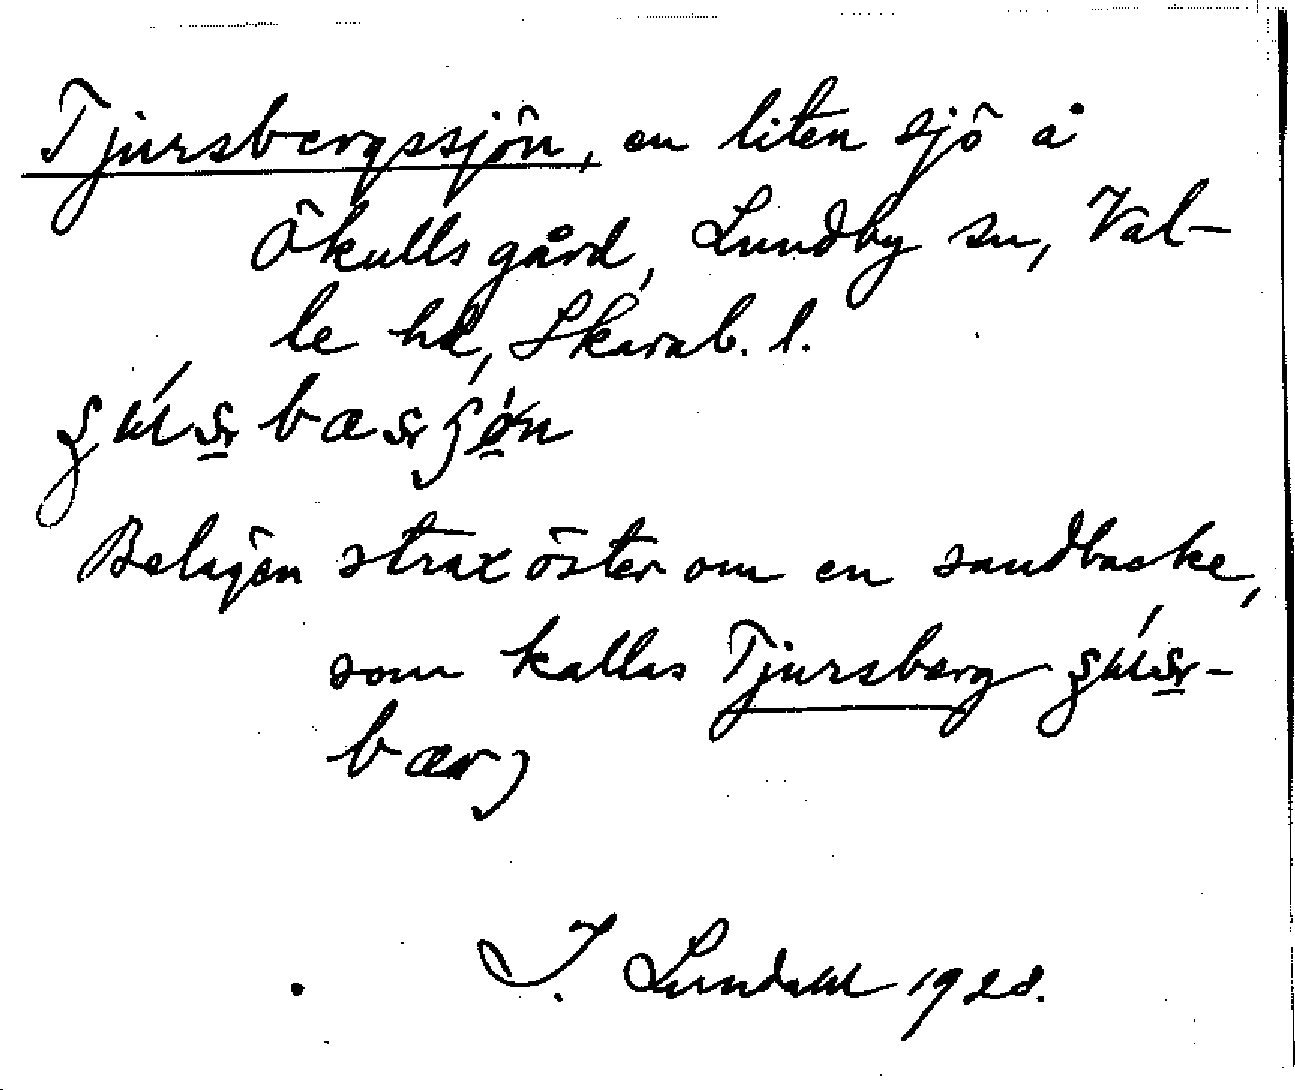 Tjursbergssjön, en liten sjö å
Ökulls gård, Lundby sn, Val-
le hd, Skarab. l.
Belägen strax öster om en sandbacke,
som kallas Tjursberg
I. Lundahl 1928.